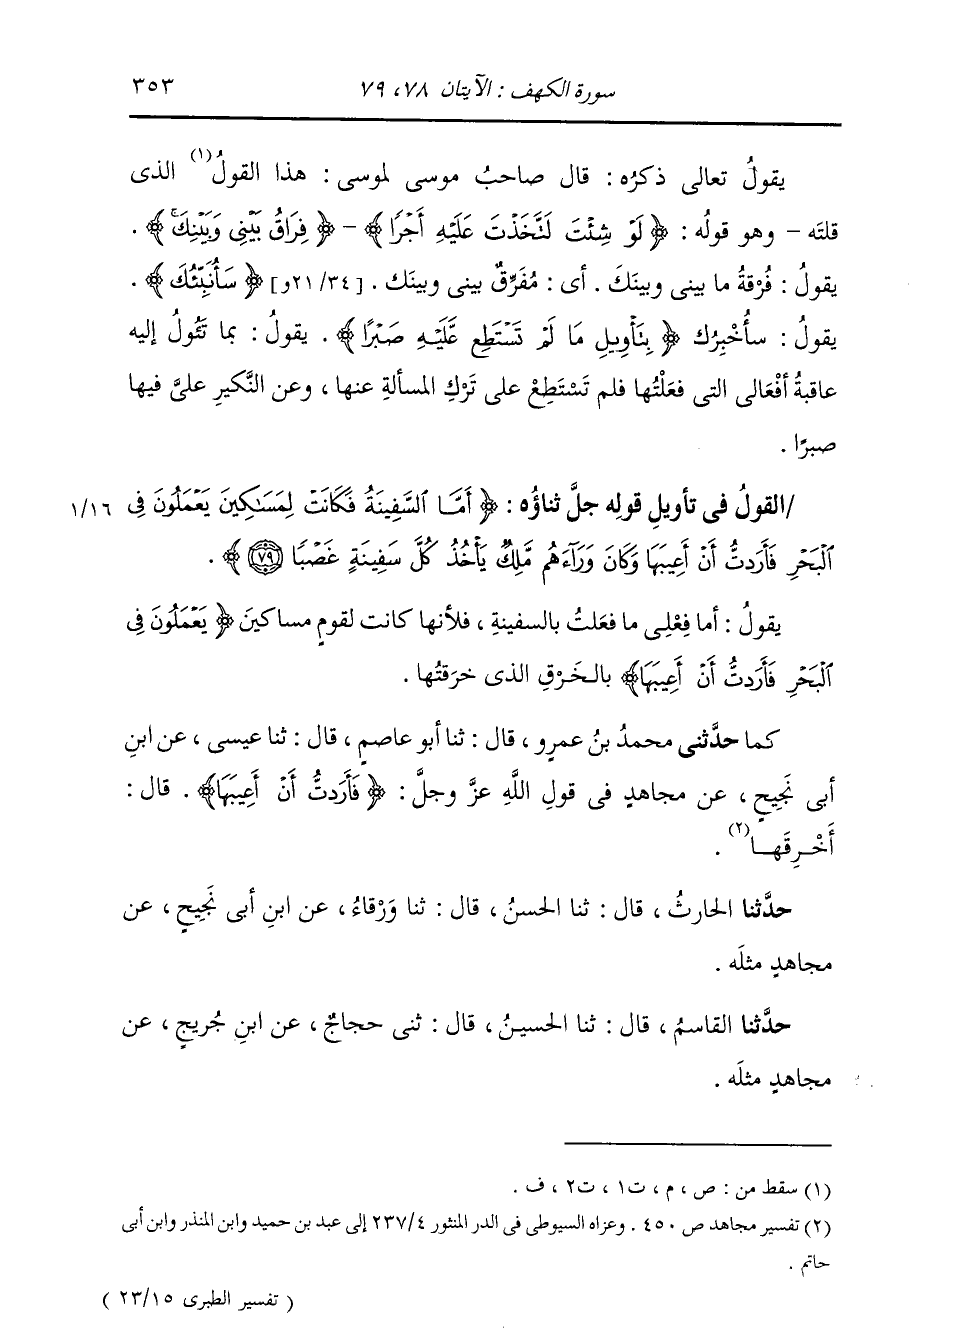 سورة الكهف : الآيتان ٧٨، ٧٩
٣٥٣
يقولُ تعالى ذكرُه : قال صاحبُ موسى لموسى : هذا القولُ(١) الذى
قلتَه – وهو قولُه : ﴿ لَوْ شِئْتَ لَتَّخَذْتَ عَلَيْهِ أَجْرًا ﴾ – ﴿ فِرَاقُ بَيْنِى وَبَيْنِكَ ۚ ﴾ .
يقولُ : فُرْقةُ ما بينى وبينَكَ . أى : مُفَرِّقٌ بينى وبينَك . [٢١/٣٤و] ﴿ سَأُنَبِّئُكَ ﴾ .
يقولُ : سأُخْبِرُك ﴿ بِتَأْوِيلِ مَا لَمْ تَسْتَطِع عَّلَيْهِ صَبْرًا ﴾ . يقولُ : بما تَئُولُ إليه
عاقبةُ أفْعَالى التى فعَلْتُها فلم تَسْتَطِعْ على تَرْكِ المسألةِ عنها ، وعن النَّكيرِ علىَّ فيها
صبرًا .
/القولُ فى تأويلِ قولِه جلَّ ثناؤُه : ﴿ أَمَّا ٱلسَّفِينَةُ فَكَانَتْ لِمَسَٰكِينَ يَعْمَلُونَ فِى ١/١٦
ٱلْبَحْرِ فَأَرَدتُّ أَنْ أَعِيبَهَا وَكَانَ وَرَآءَهُم مَّلِكٌ يَأْخُذُ كُلَّ سَفِينَةٍ غَصْبًا ٧٩ ﴾ .
يقولُ : أما فِعْلِى ما فعَلتُ بالسفينةِ ، فلأنها كانت لقومٍ مساكينَ ﴿ يَعْمَلُونَ فِى
ٱلْبَحْرِ فَأَرَدتُّ أَنْ أَعِيبَهَا﴾ بالخَرْقِ الذى خرَقتُها .
كما حدَّثنى محمدُ بنُ عمرٍو ، قال : ثنا أبو عاصمٍ ، قال : ثنا عيسى ، عن ابنِ
أبى نَجِيحٍ ، عن مجاهدٍ فى قولِ اللَّهِ عزَّ وجلَّ : ﴿ فَأَرَدتُّ أَنْ أَعِيبَهَا﴾ . قال :
أَخْرِقَهـا(٢) .
حدَّثنا الحارثُ ، قال : ثنا الحسنُ ، قال : ثنا وَرْقاءُ ، عن ابنِ أبى نَجِيحٍ ، عن
مجاهدٍ مثلَه .
حدَّثنا القاسمُ ، قال : ثنا الحسينُ ، قال : ثنى حجاجٌ ، عن ابنِ جُريجٍ ، عن
مجاهدٍ مثلَه .
(١) سقط من : ص ، م ، ت١ ، ت٢ ، ف .
(٢) تفسير مجاهد ص ٤٥٠ . وعزاه السيوطى فى الدر المنثور ٢٣٧/٤ إلى عبد بن حميد وابن المنذر وابن أبى
حاتم .
( تفسير الطبرى ٢٣/١٥ )